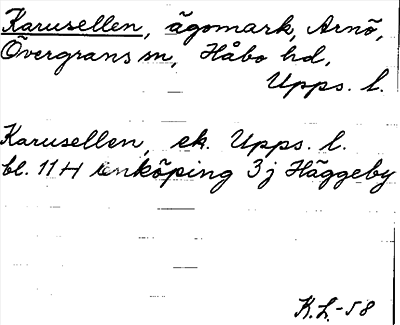 Karusellen, ägomark, Arnö,
Övergrans sn, Håbo hd,
Upps. l.
Karusellen, ek. Upps. l.
bl. 11 H Enköping 3j Häggeby
K.L.-58